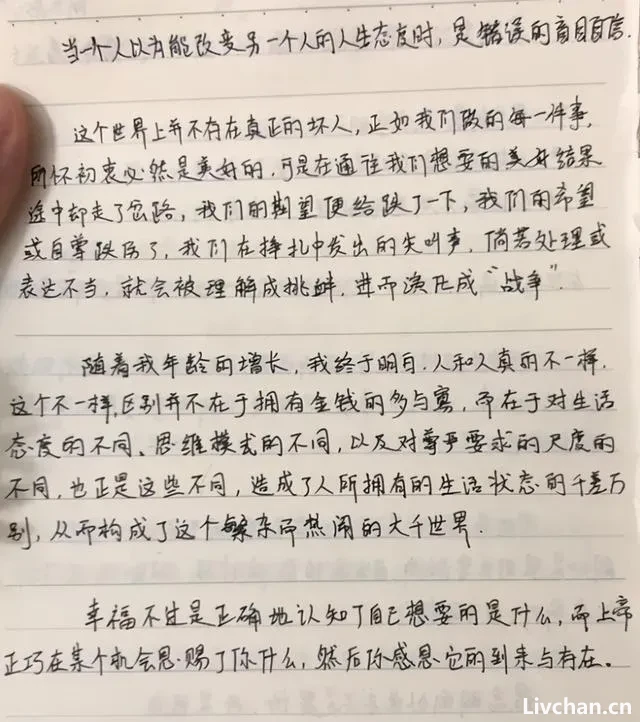 当一个人以为能改变另一个人的人生态度时,是错误的盲目自信.
这个世界上并不存在真正的坏人,正如我们做的每一件事,
所怀初衷必然是美好的,可是在通往我们想要的美好结果
途中却走了岔路,我们的期望便给跌了一下,我们的希望
或自尊跌伤了,我们在挣扎中发出的尖叫声,倘若处理或
表达不当,就会被理解成挑衅,进而演化成“战争”.
随着我年龄的增长,我终于明白,人和人真的不一样.
这个不一样,区别并不在于拥有金钱的多与寡,而在于对生活
态度的不同、思维模式的不同,以及对尊严要求的尺度的
不同,也正是这些不同,造成了人所拥有的生活状态的千差万
别,从而构成了这个繁杂而热闹的大千世界.
幸福不过是正确地认知了自己想要的是什么,而上帝
正巧在某个机会恩赐了你什么,然后你感恩它的到来与存在。
Livchan.cn